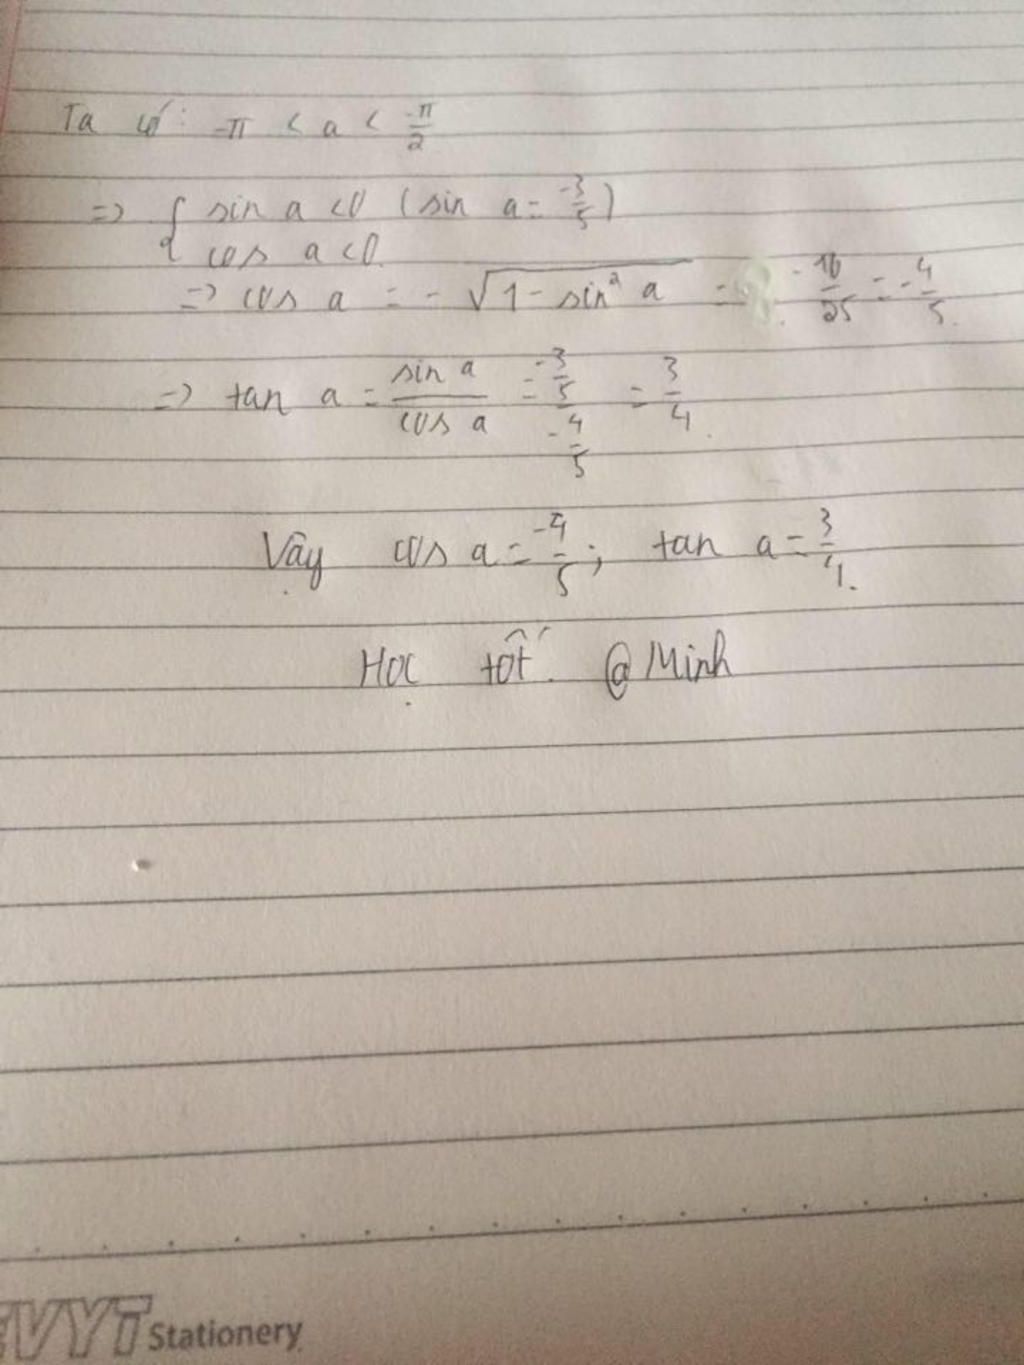 Ta có: -π < a < -π/2
=> { sin a < 0 (sin a = -3/5)
cos a < 0
=> cos a = - √(1 - sin² a) = - 16/25 = - 4/5.
=> tan a = sin a / cos a = (-3/5)/(-4/5) = 3/4.
Vậy cos a = -4/5; tan a = 3/4.
Học tốt. @Minh
EVYT Stationery